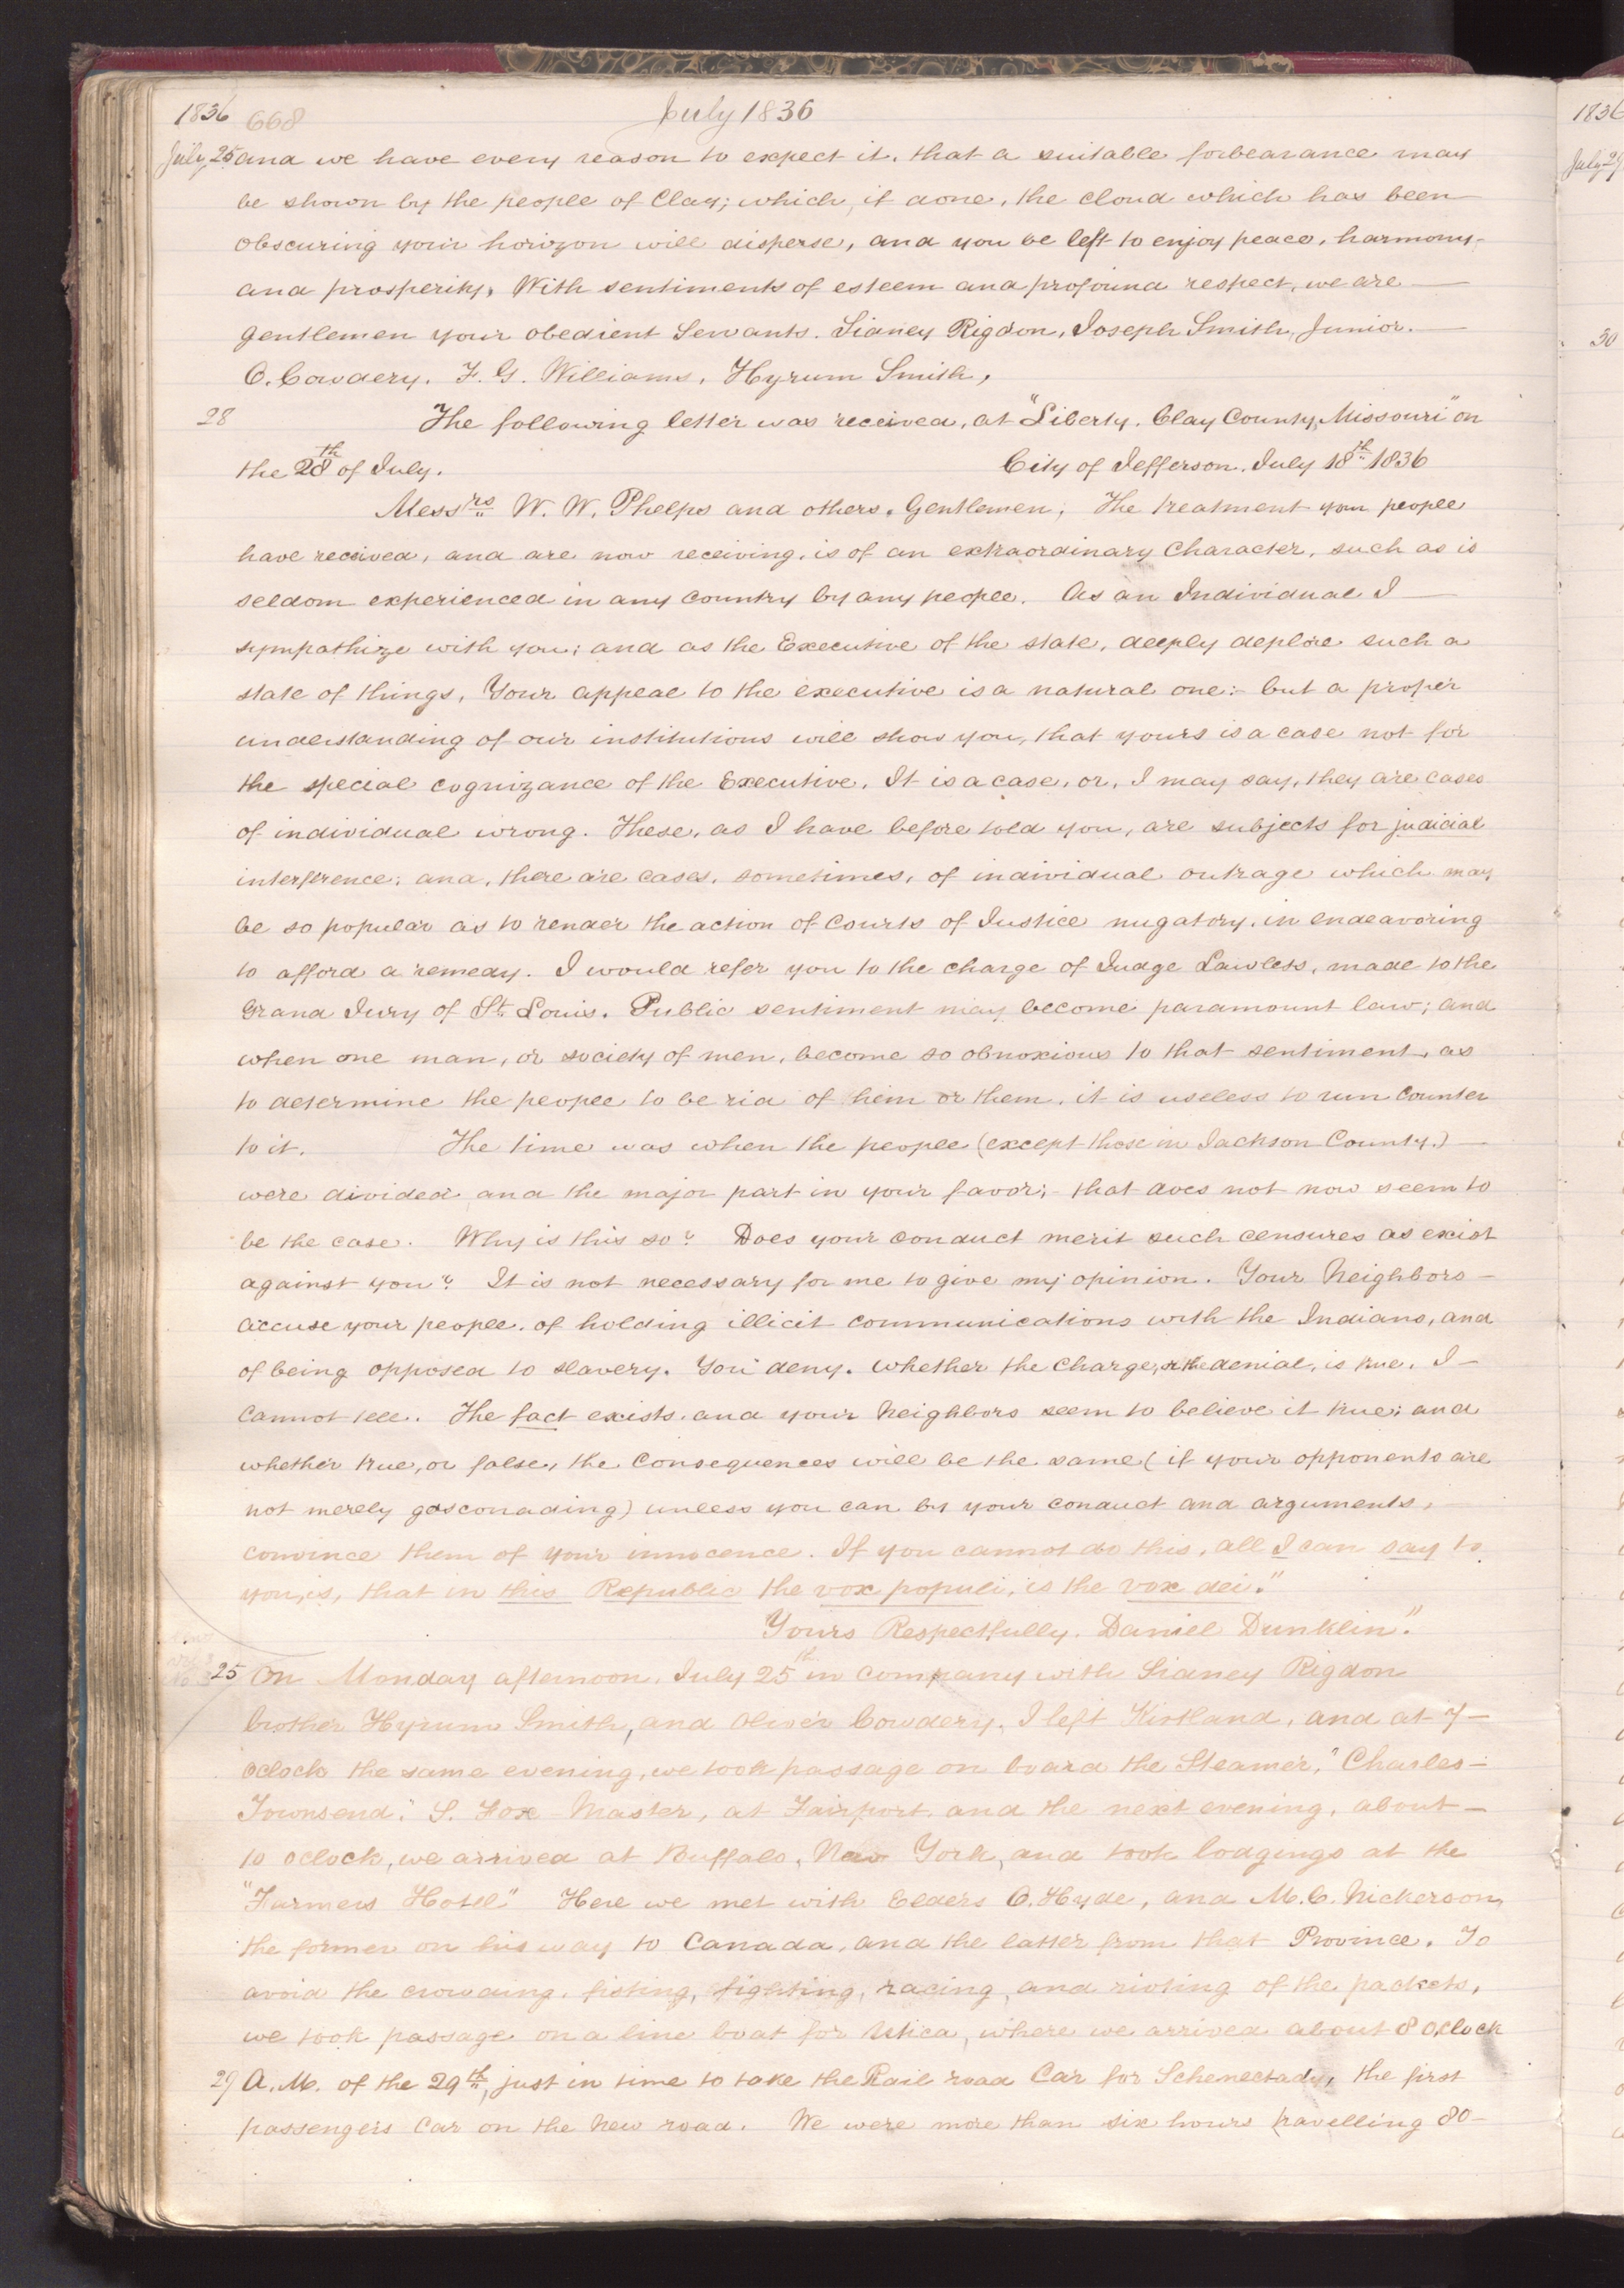 1836 668 July 1836
July, 25 and we have every reason to expect it, that a suitable forbearance may
be shown by the people of Clay; which, if done, the cloud which has been
obscuring your horizon will disperse, and you be left to enjoy peace, harmony
and prosperity, With sentiments of esteem and profound respect, we are
gentlemen your obedient Servants. Sidney Rigdon, Joseph Smith, Junior.
O. Cowdery. F. G. Williams, Hyrum Smith,
28 The following letter was received, at "Liberty, Clay County, Missouri" on
the 28th of July. City of Jefferson, July 18th 1836
Messrs W. W. Phelps and others, Gentlemen; The treatment your people
have received, and are now receiving, is of an extraordinary Character, such as is
seldom experienced in any country by any people. As an Individual I
sympathize with you; and as the Executive of the state, deeply deplore such a
state of things, Your appeal to the executive is a natural one:- but a proper
understanding of our institutions will show you, that yours is a case not for
the special cognizance of the Executive. It is a case, or, I may say, they are cases
of individual wrong. These, as I have before told you, are subjects for judicial
interference; and, there are cases, sometimes, of individual outrage which may
be so popular as to render the action of Courts of Justice nugatory, in endeavoring
to afford a remedy. I would refer you to the charge of Judge Lawless, made to the
Grand Jury of St. Louis. Public sentiment may become paramount law; and
when one man, or society of men, become so obnoxious to that sentiment, as
to determine the people to be rid of him or them, it is useless to run Counter
to it. The time was when the people (except those in Jackson County.)
were divided and the major part in your favor; that does not now seem to
be the case. Why is this so? Does your conduct merit such censures as exist
against you? It is not necessary for me to give my opinion. Your Neighbors
accuse your people, of holding illicit communications with the Indians, and
of being opposed to slavery. You deny. Whether the charge, or the denial, is true, I
Cannot tell. The fact exists, and your Neighbors seem to believe it true; and
whether true, or false, the Consequences will be the same (if your opponents are
not merely gasconading) unless you can by your conduct and arguments,
convince them of your innocence. If you cannot do this, all I can say to
you, is, that in this Republic the vox populi, is the vox dei."
Yours Respectfully. Daniel Dunklin."
25 On Monday afternoon, July 25th in company with Sidney Rigdon
brother Hyrum Smith, and Oliver Cowdery, I left Kirtland, and at 7
oclock the same evening, we took passage on board the Steamer, "Charles
Townsend," S. Fox Master, at Fairport, and the next evening, about
10 oclock, we arrived at Buffalo, New York, and took lodgings at the
"Farmers Hotel" Here we met with Elders O. Hyde, and M. C. Nickerson,
the former on his way to Canada, and the latter from that Province. To
avoid the crowding, fisting, fighting, racing, and rioting of the packets,
we took passage on a line boat for Utica, where we arrived about 8 oclock
29 A. M. of the 29th, just in time to take the Rail road Car for Schenectady, the first
passengers Car on the New road. We were more than six hours travelling 80
1836
July 29
30